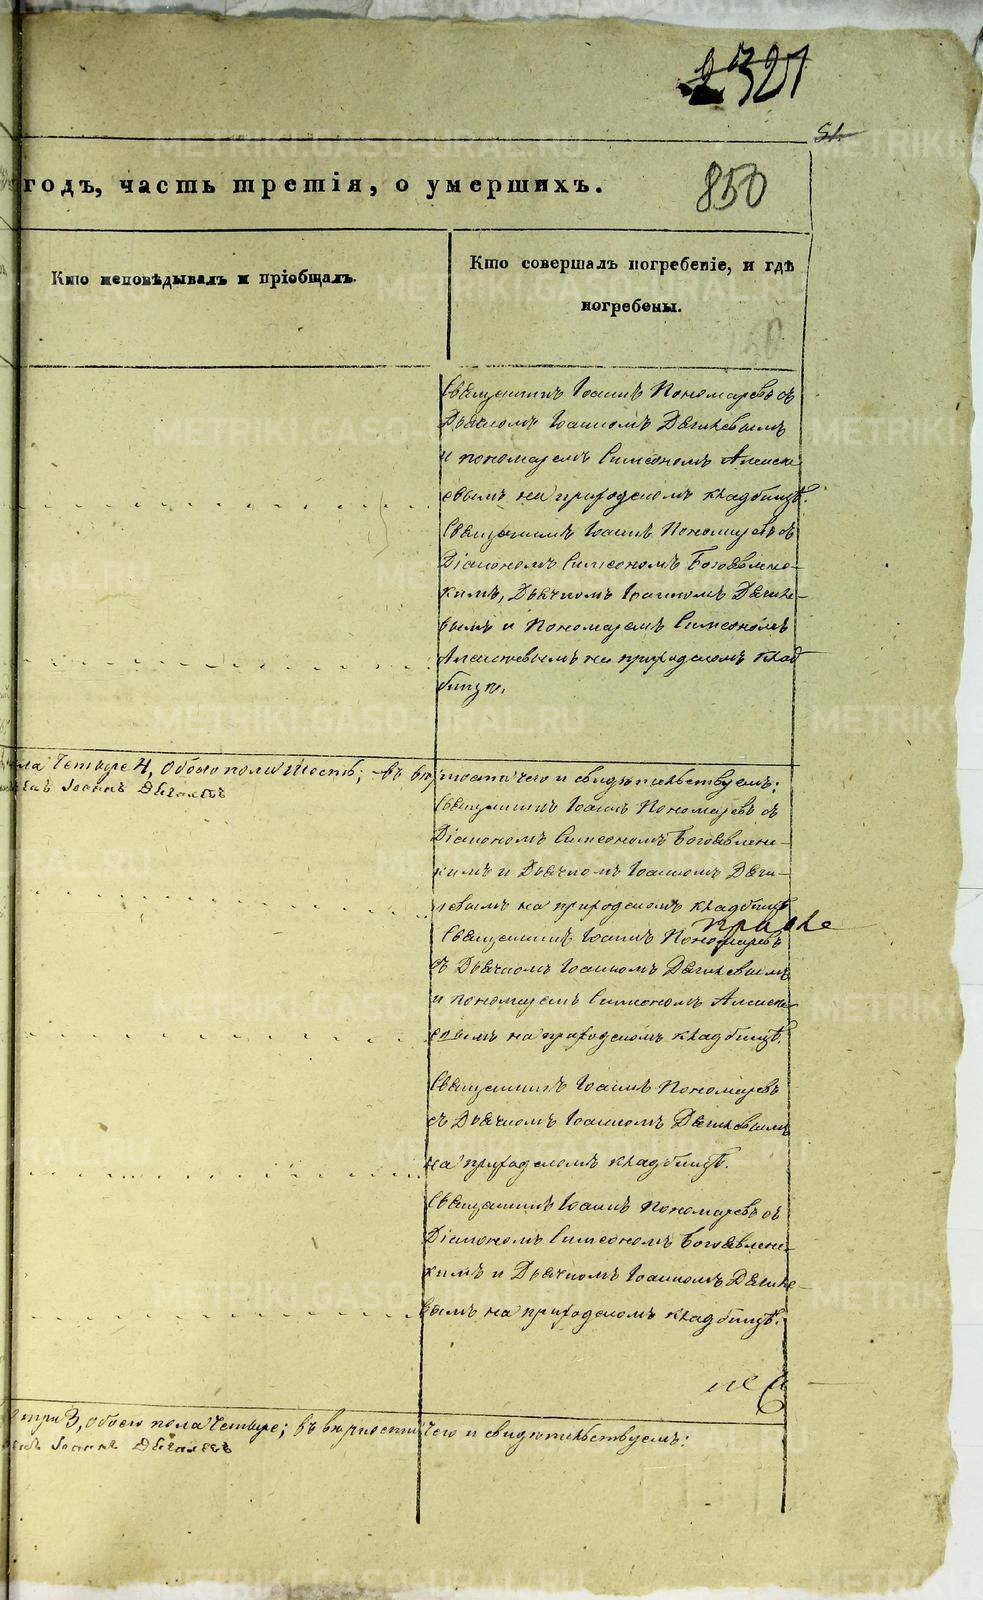 321
51
годъ, часть третія, о умершихъ.
850
Кто исповѣдывалъ и пріобщалъ.
Кто совершалъ погребеніе, и гдѣ
погребены.
150
Священникъ Іоаннъ Пономаревъ съ
Дьячкомъ Іоанномъ Дягилевымъ
и пономаремъ Симеономъ Алексѣ
евымъ на приходскомъ кладбищѣ.
Священникъ Іоаннъ Пономаревъ съ
Діакономъ Симеономъ Богоявленс-
кимъ, Дьячкомъ Іоанномъ Дягиле-
вымъ и Пономаремъ Симеономъ
Алексѣевымъ на приходскомъ клад
бищѣ.
ла Четыре 4, обоего пола шесть; въ вѣрности чего и свидѣтельствуемъ:
Іоаннъ Дягилевъ
Священникъ Іоаннъ Пономаревъ съ
Діакономъ Симеономъ Богоявленс-
кимъ и Дьячкомъ Іоанномъ Дяги-
левымъ на приходскомъ кладбищѣ
Священникъ Іоаннъ Пономаревъ
съ Дьячкомъ Іоанномъ Дягилевымъ
и пономаремъ Симеономъ Алексѣ
евымъ на приходскомъ кладбищѣ.
Священникъ Іоаннъ Пономаревъ
съ Дьячкомъ Іоанномъ Дягилевымъ
на приходскомъ кладбищѣ.
Священникъ Іоаннъ Пономаревъ съ
Діакономъ Симеономъ Богоявленс-
кимъ и Дьячкомъ Іоанномъ Дягиле-
вымъ на приходскомъ кладбищѣ.
три 3, обоего пола Четыре; въ вѣрности чего и свидѣтельствуемъ:
Іоаннъ Дягилевъ
METRIKI.GASO-URAL.RU